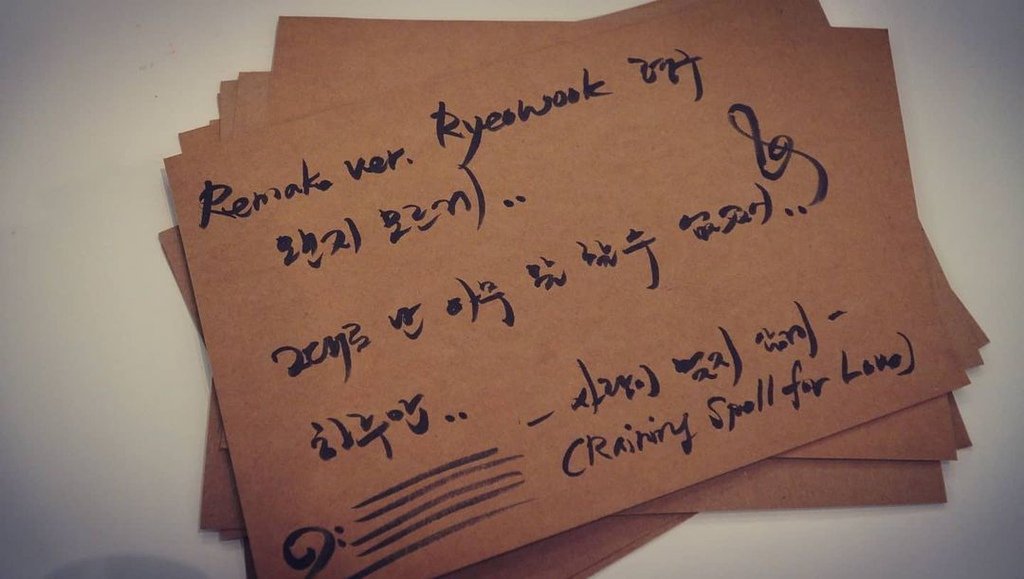 Remake ver. Ryeowook 려욱
왠지 모르게..
그대로 난 아무 말 할 수 없었어..
하루만..
- 사랑이 멎지 않게 -
(Raining Spell for Love)